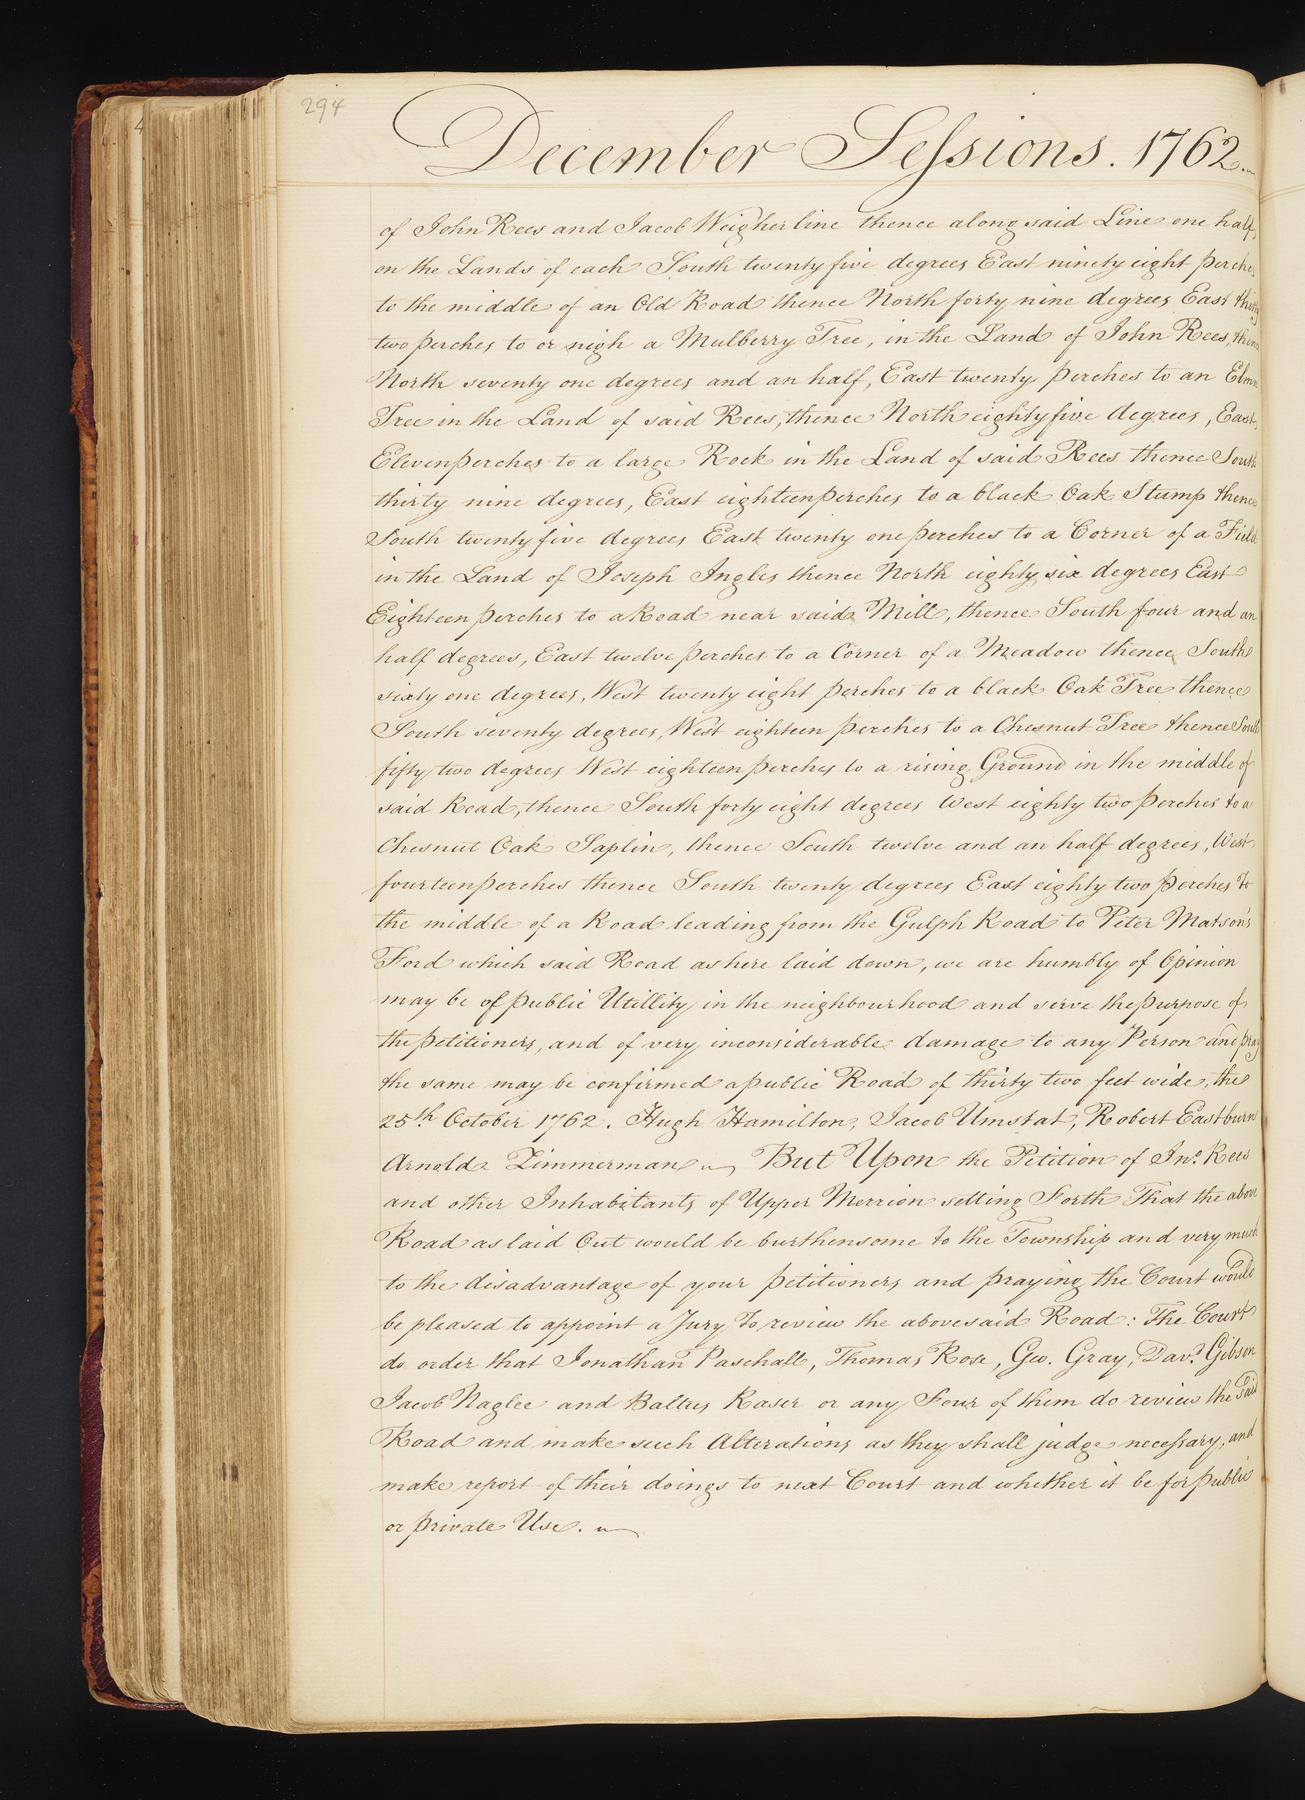 294
December Sessions. 1762.
of John Rees and Jacob Weigher line thence along said Line one half,
on the Lands of each South twenty five degrees East ninety eight perches
to the middle of an Old Road thence North forty nine degrees East thirty
two perches to or nigh a Mulberry Tree, in the Land of John Rees, thence
North seventy one degrees and an half, East twenty perches to an Elm
Tree in the Land of said Rees, thence North eighty five degrees, East,
Eleven perches to a large Rock in the Land of said Rees thence South
thirty nine degrees, East eighteen perches to a black Oak Stump thence
South twenty five degrees East twenty one perches to a Corner of a Field
in the Land of Joseph Ingles thence North eighty six degrees East
Eighteen perches to a Road near said Mill, thence South four and an
half degrees, East twelve perches to a Corner of a Meadow thence South
sixty one degrees, West twenty eight perches to a black Oak Tree thence
South seventy degrees, West eighteen perches to a Chesnut Tree thence South
fifty two degrees West eighteen perches to a rising Ground in the middle of
said Road, thence South forty eight degrees West eighty two perches to a
Chesnut Oak Saplin, thence South twelve and an half degrees, West
fourteen perches thence South twenty degrees East eighty two perches to
the middle of a Road leading from the Gulph Road to Peter Matson's
Ford which said Road as here laid down, we are humbly of Opinion
may be of public Utillity in the neighbourhood and serve the purpose of
the petitioners, and of very inconsiderable damage to any Person and pray
the same may be confirmed a public Road of thirty two feet wide, the
25th October 1762. Hugh Hamilton, Jacob Umstat, Robert Eastburn
Arnold Zimmerman But Upon the Petition of Jno. Rees
and other Inhabitants of Upper Merrion setting Forth That the above
Road as laid Out would be burthensome to the Township and very much
to the disadvantage of your petitioners and praying the Court would
be pleased to appoint a Jury to review the abovesaid Road: The Court
do order that Jonathan Paschall, Thomas Rose, Geo. Gray, Davd. Gibson
Jacob Naglee and Baltus Raser or any Four of them do review the said
Road and make such Alterations as they shall judge necessary, and
make report of their doings to next Court and whether it be for public
or private Use.